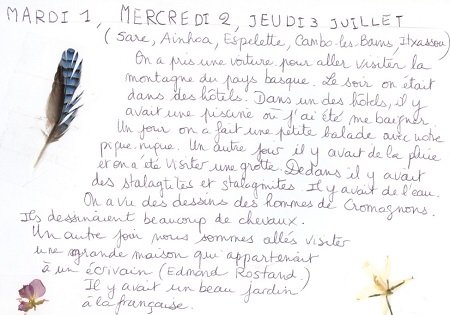 MARDI 1, MERCREDI 2, JEUDI 3 JUILLET
(Sare, Ainhoa, Espelette, Cambo-les-Bains, Itxassou)
On a pris une voiture pour aller visiter la
montagne du pays basque. Le soir on était
dans des hôtels. Dans un des hôtels, il y
avait une piscine où j'ai été me baigner.
Un jour on a fait une petite balade avec notre
pique-nique. Un autre jour il y avait de la pluie
et on a été visiter une grotte. Dedans il y avait
des stalagtites et stalagmites. Il y avait de l'eau.
On a vu des dessins des hommes de Cromagnons.
Ils dessinaient beaucoup de chevaux.
Un autre jour nous sommes allés visiter
une grande maison qui appartenait
à un écrivain (Edmond Rostard.)
Il y avait un beau jardin
à la française.